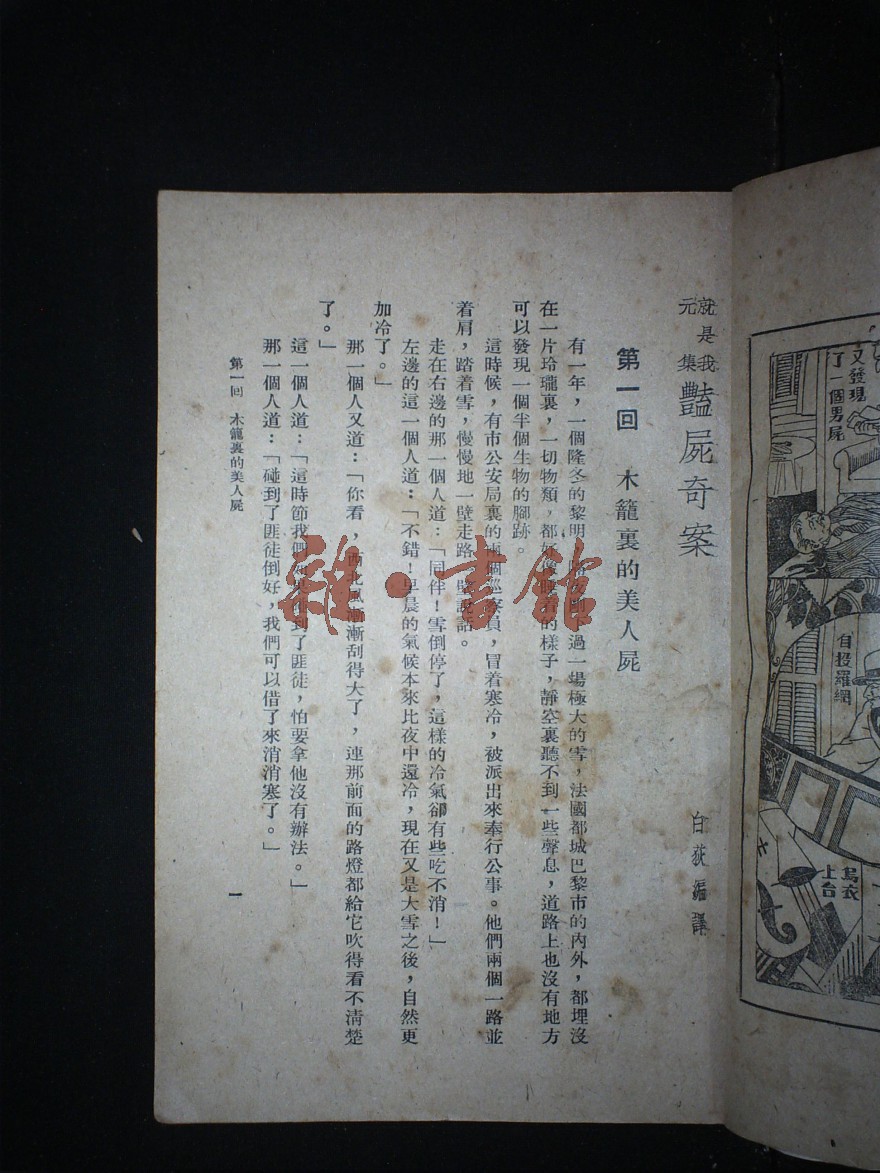 又發現
了一個男屍
自投羅網
烏衣
上台
就是我
元集
豔屍奇案
白荻編譯
第一回　木籠裏的美人屍
有一年，一個隆冬的黎明，夜剛下過一場極大的雪，法國都城巴黎市的內外，都埋沒
在一片玲瓏裏，一切物類，都好像睡着的樣子，靜空裏聽不到一些聲息，道路上也沒有地方
可以發現一個半個生物的腳跡。
這時候，有市公安局裏的兩個巡察員，冒着寒冷，被派出來奉行公事。他們兩個一路並
着肩，踏着雪，慢慢地一壁走路一壁說話。
走在右邊的那一個人道：「同伴！雪倒停了，這樣的冷氣卻有些吃不消！」
左邊的這一個人道：「不錯！早晨的氣候本來比夜中還冷，現在又是大雪之後，自然更
加冷了。」
那一個人又道：「你看，西北風漸漸刮得大了，連那前面的路燈都給它吹得看不清楚
了。」
這一個人道：「這時節我們如果碰到了匪徒，怕要拿他沒有辦法。」
那一個人道：「碰到了匪徒倒好，我們可以借了來消消寒了。」
第一回　木籠裏的美人屍
一
雜·書館